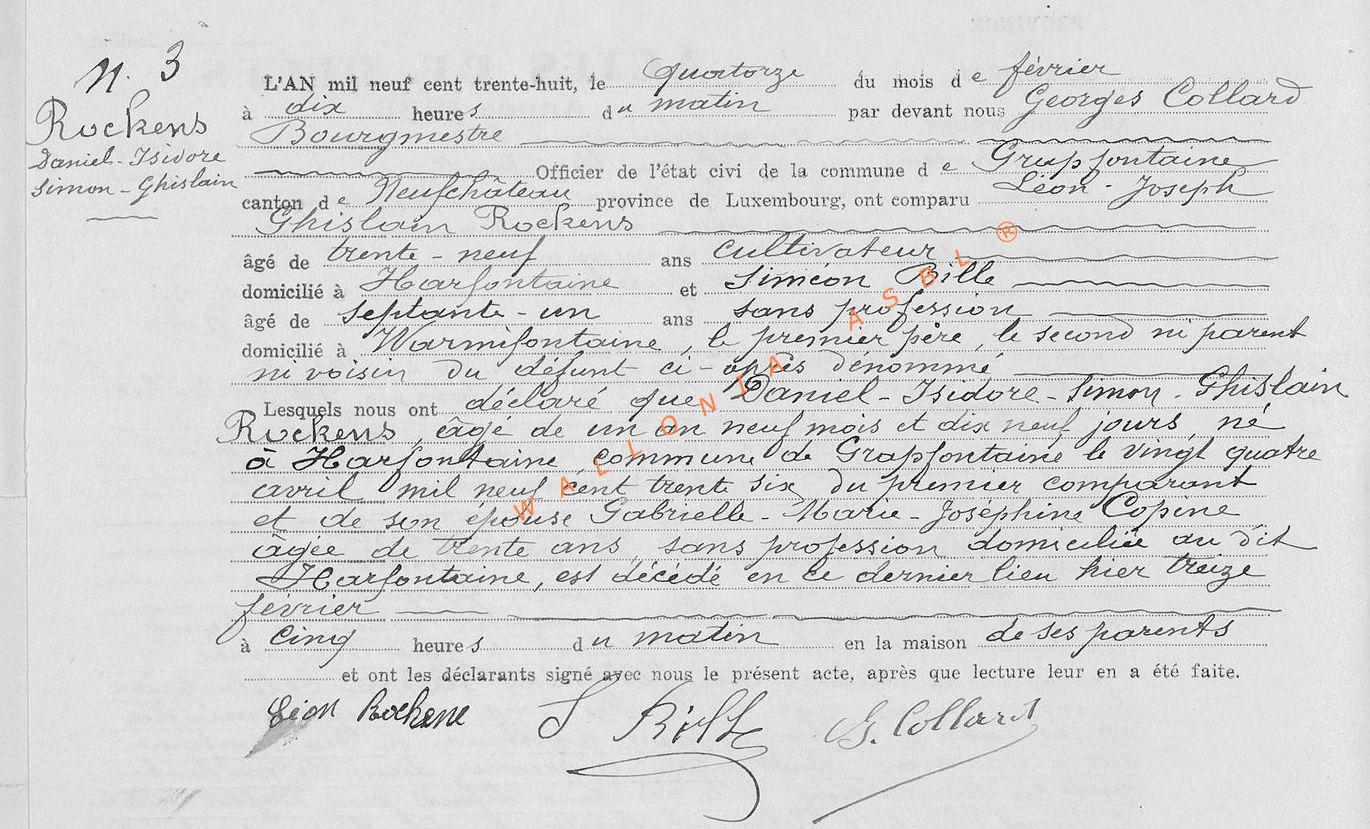 N. 3
Rockens
Daniel-Isidore
Simon-Ghislain
L'AN mil neuf cent trente-huit, le quatorze du mois de février
à dix heures du matin par devant nous Georges Collard
Bourgmestre
Officier de l'état civi de la commune de Grapfontaine
canton de Neufchâteau province de Luxembourg, ont comparu Léon-Joseph
Ghislain Rockens
âgé de trente-neuf ans cultivateur
domicilié à Harfontaine et Siméon Bille
âgé de septante-un ans sans profession
domicilié à Warmifontaine, le premier père, le second ni parent
ni voisin du défunt ci-après dénommé
Lesquels nous ont déclaré que Daniel-Isidore-Simon-Ghislain
Rockens, âgé de un an neuf mois et dix neuf jours, né
à Harfontaine, commune de Grapfontaine le vingt quatre
avril mil neuf cent trente six du premier comparant
et de son épouse Gabrielle-Marie-Joséphine Copine
âgée de trente ans, sans profession domiciliée au dit
Harfontaine, est décédé en ce dernier lieu hier treize
février
à cinq heures du matin en la maison de ses parents
et ont les déclarants signé avec nous le présent acte, après que lecture leur en a été faite.
Léon Rockens S Bille G. Collard
WALLONIA ASBL ®